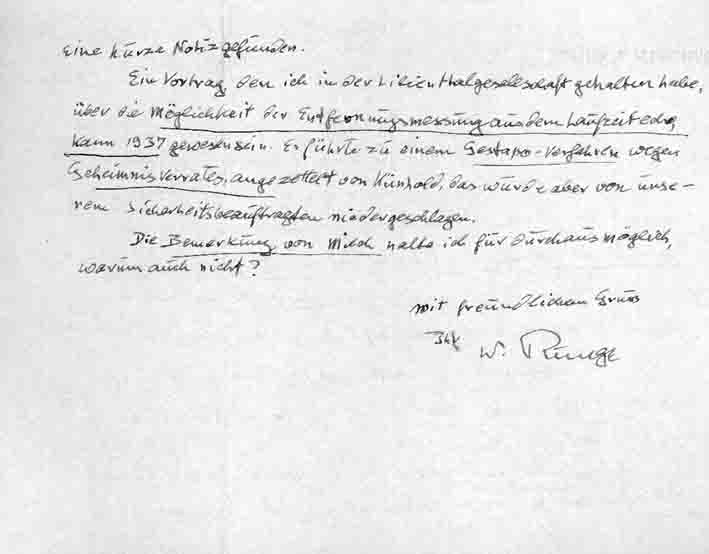 Eine kurze Notiz gefunden.
Ein Vortrag, den ich in der Lilienthalgesellschaft gehalten habe,
über die Möglichkeit der Entfernungsmessung aus dem Laufzeitecho,
kann 1937 gewesen sein. Er führte zu einem Gestapo-Verfahren wegen
Geheimnisverrates, angezettelt von Künhold, das wurde aber von unse-
rem Sicherheitsbeauftragten niedergeschlagen.
Die Bemerkung von Milch halte ich für durchaus möglich,
warum auch nicht?
mit freundlichem Gruss
Ihr
W. Runge